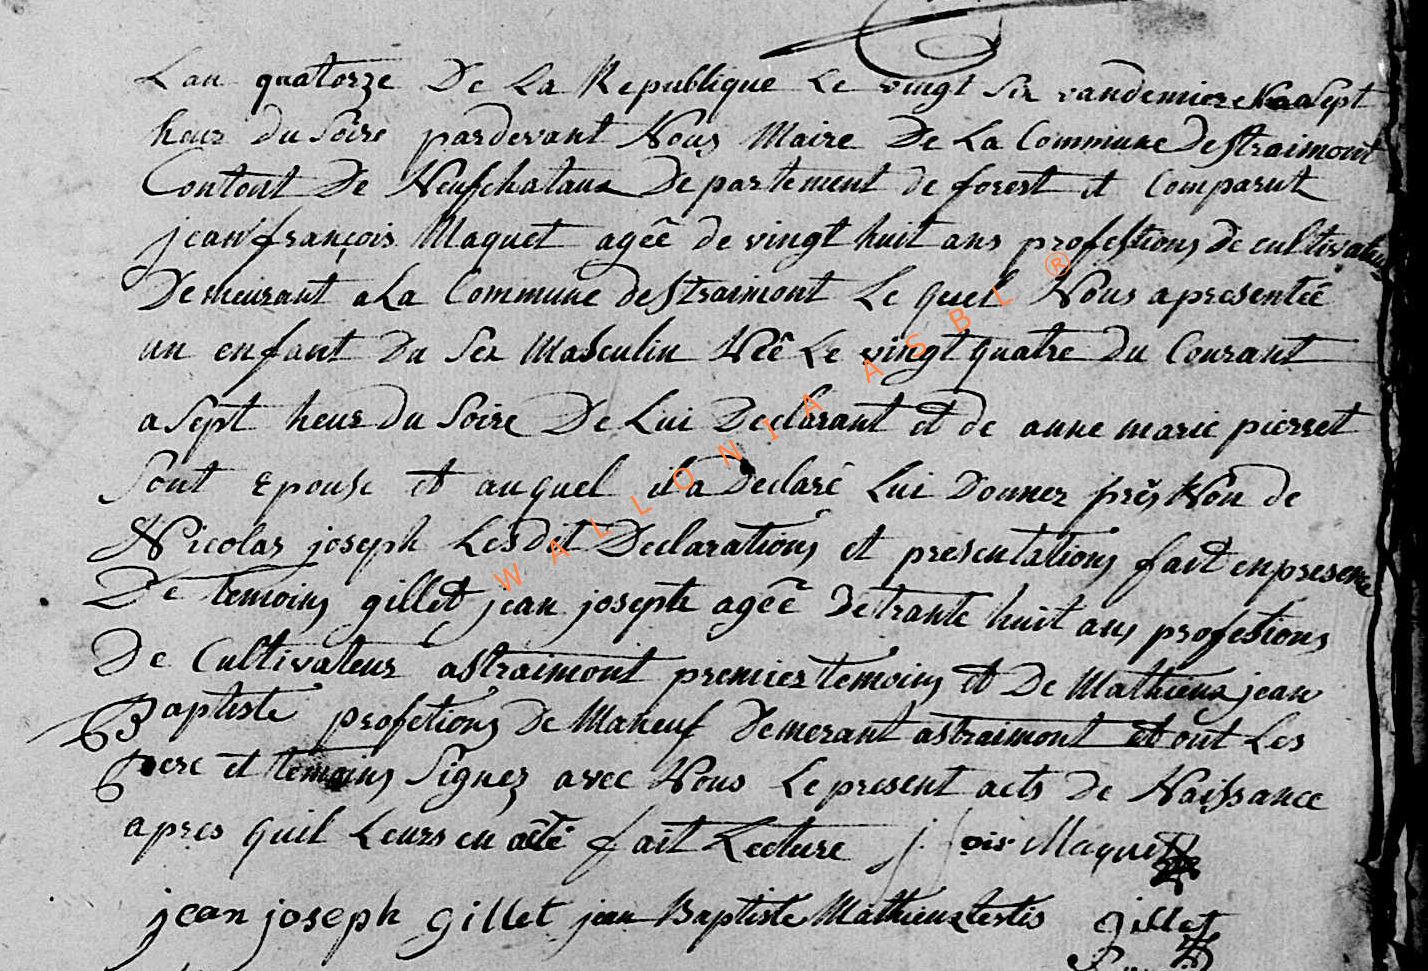 Lan quatorze De La Republique Le vingt Six vandemiere asept
heur du Soire pardevant Nous Maire De La Commune de Straimont
Contont De Neufchataux Departement de forest et Comparut
jean françois Maquet ageê de vingt huit ans profestions De cultivateur
Demeurant a La Commune deStraimont Le quel Nous apresenteê
un enfant Du Sex Masculin Neê Le vingt quatre du Courant
a Sept heur du Soire De Lui Declarant et de anne marie pierret
Sont Epouse et auquel il a Declaré Lui Donner prês Nôn de
Nicolas joseph Lesdit Declarations et presentations fait enpresence
De temoins gillet jean josepte ageê De trante huit ans profestions
De Cultivateur astraimont premier temoins et De Mathieux jean
Baptiste profetions de Maneuf Demerant astraimont et ont Les
pere et temoins Signez avec Nous Le present acts de Naissance
apres quil Leurs en aêté fait Lecture j. fois Maquet
jean joseph gillet jean Baptiste Mathieux testis gillet
WALLONIA ASBL ®